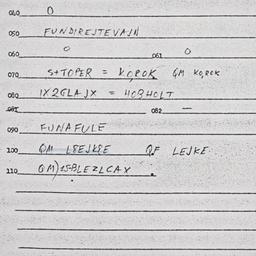 040 O
050 FUNDIREJTEVAJN
060 O 061 O
070 S+TOPER = KOROK GM KOROK
080 1X2GLAJX = HOBHOLT
081 082 —
090 FUNAFULE
100 GM LEEJKEE GF LEJKE
110